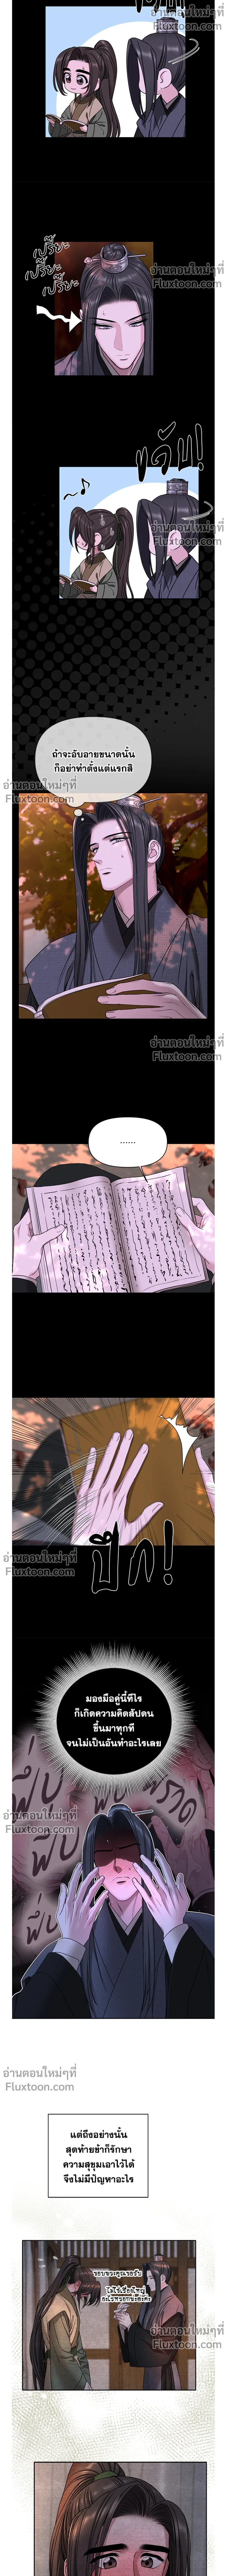 อ่านตอนใหม่ๆที่
Fluxtoon.com
เปรี๊ยะ
เปรี๊ยะ
เปรี๊ยะ
อ่านตอนใหม่ๆที่
Fluxtoon.com
อ่านตอนใหม่ๆที่
Fluxtoon.com
ถ้าจะอับอายขนาดนั้น
ก็อย่าทำตั้งแต่แรกสิ
อ่านตอนใหม่ๆที่
Fluxtoon.com
อ่านตอนใหม่ๆที่
Fluxtoon.com
......
อ่านตอนใหม่ๆที่
Fluxtoon.com
ปึก!
มองมือคู่นี้ทีไร
ก็เกิดความคิดสัปดน
ขึ้นมาทุกที
จนไม่เป็นอันทำอะไรเลย
อ่านตอนใหม่ๆที่
Fluxtoon.com
อ่านตอนใหม่ๆที่
Fluxtoon.com
แต่ถึงอย่างนั้น
สุดท้ายข้าก็รักษา
ความสุขุมเอาไว้ได้
จึงไม่มีปัญหาอะไร
อ่านตอนใหม่ๆที่
Fluxtoon.com